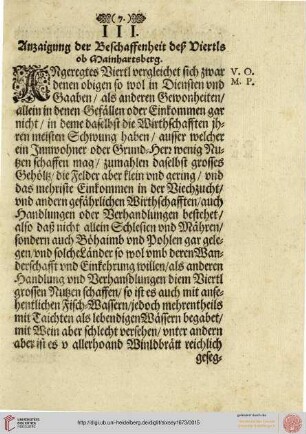 (7.)
III.
Anzaigung der Beschaffenheit deß Viertls
ob Mainhartsberg.
V. O.
M. P.
ANgeregtes Viertl vergleichet sich zwar
denen obigen so wol in Diensten und
Gaaben / als anderen Gewonheiten /
allein in denen Gefällen oder Einkommen gar
nicht / in deme daselbst die Wirthschafften ih-
ren meisten Schwung haben / ausser welcher
ein Innwohner oder Grund-Herr wenig Nu-
tzen schaffen mag / zumahlen daselbst grosses
Gehöltz / die Felder aber klein und gering / und
das mehriste Einkommen in der Viechzucht /
und andern gefährlichen Wirthschafften / auch
Handlungen oder Verhandlungen bestehet /
also daß nicht allein Schlesien und Mähren /
sondern auch Böhaimb und Pohlen gar gele-
gen / und solche Länder so wol umb deren Wan-
derschafft und Einkehrung willen / als anderen
Handlung und Verhandlungen diem Viertl
grossen Nutzen schaffen / so ist es auch mit anse-
hentlichen Fisch-Wassern / jedoch mehrentheils
mit Taichten als lebendigen Wässern begabet /
mit Wein aber schlecht versehen / unter andern
aber ist es v allerhoand Winlbrätt reichlich
geseg-
http://digi.ub.uni-heidelberg.de/diglit/sixsey1673/0015